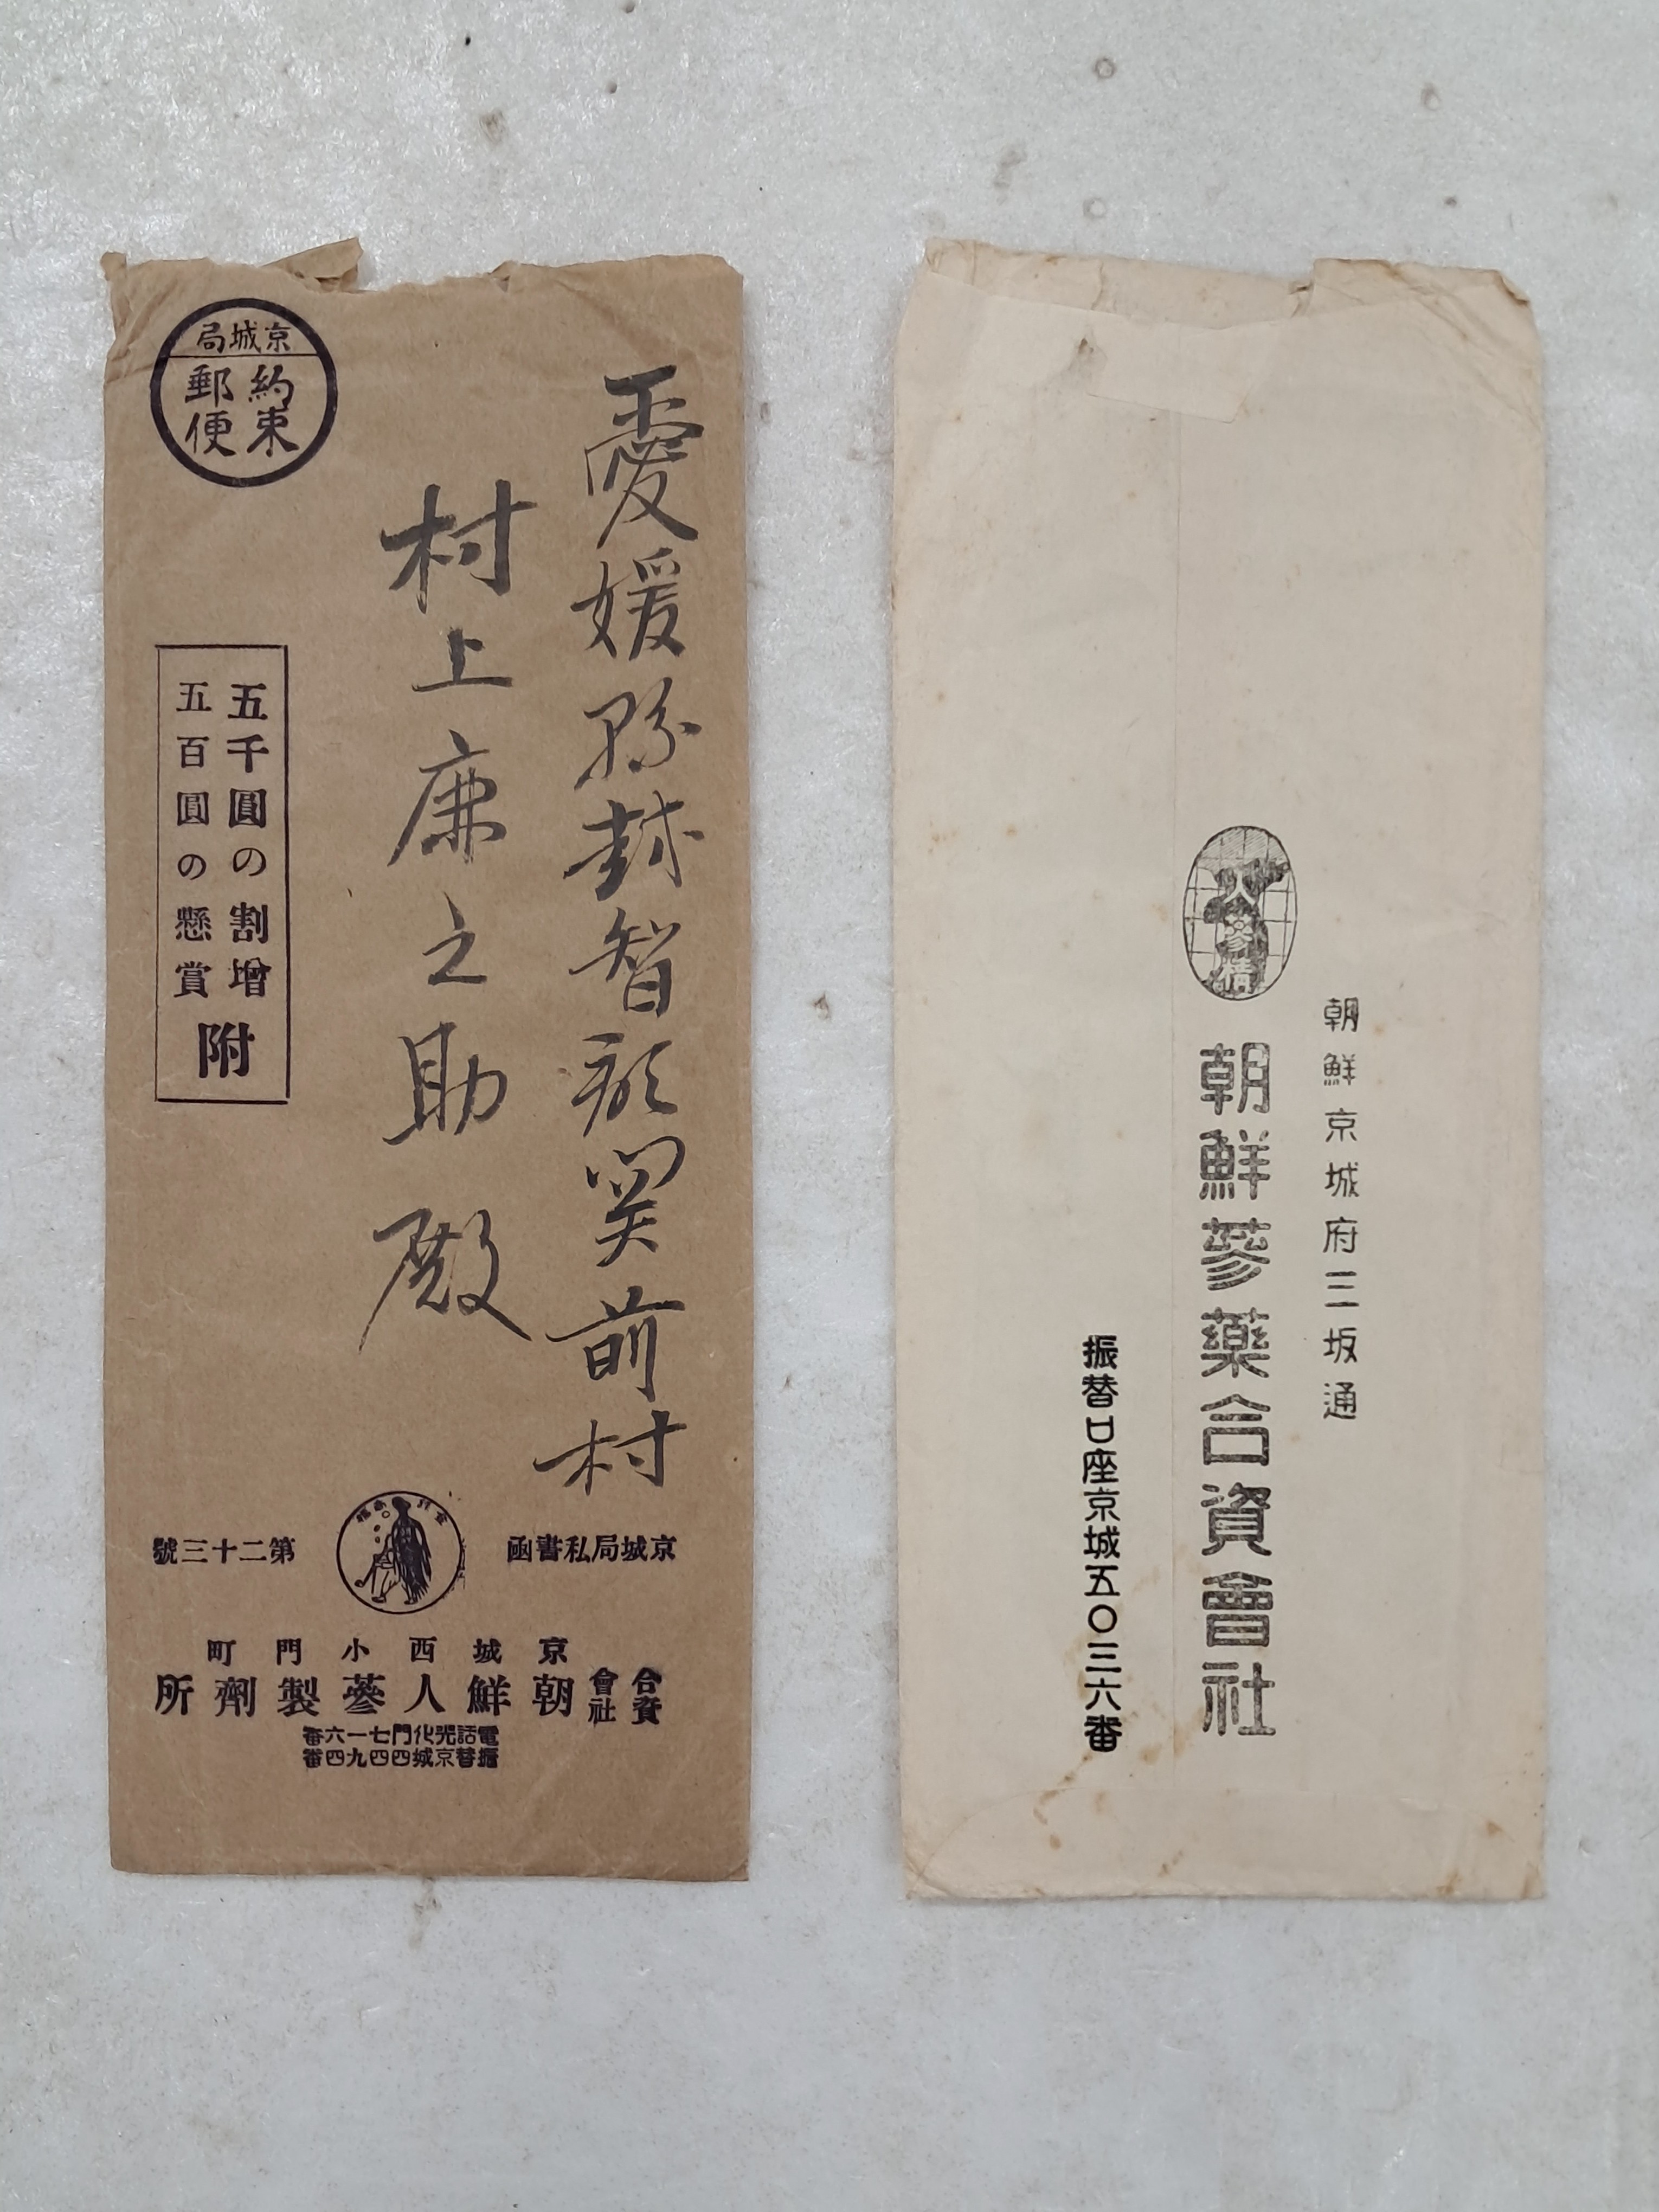 京城局
約束
郵便
愛媛縣越智郡関前村
村上廉之助殿
五千圓の割増
五百圓の懸賞
附
京城局私書函 第二十三號
京城西小門町
合資會社 朝鮮人蔘製劑所
電話光化門七一六番
振替京城四四九四番
朝鮮京城府三坂通
人蔘精
朝鮮蔘藥合資會社
振替口座京城五〇三六番